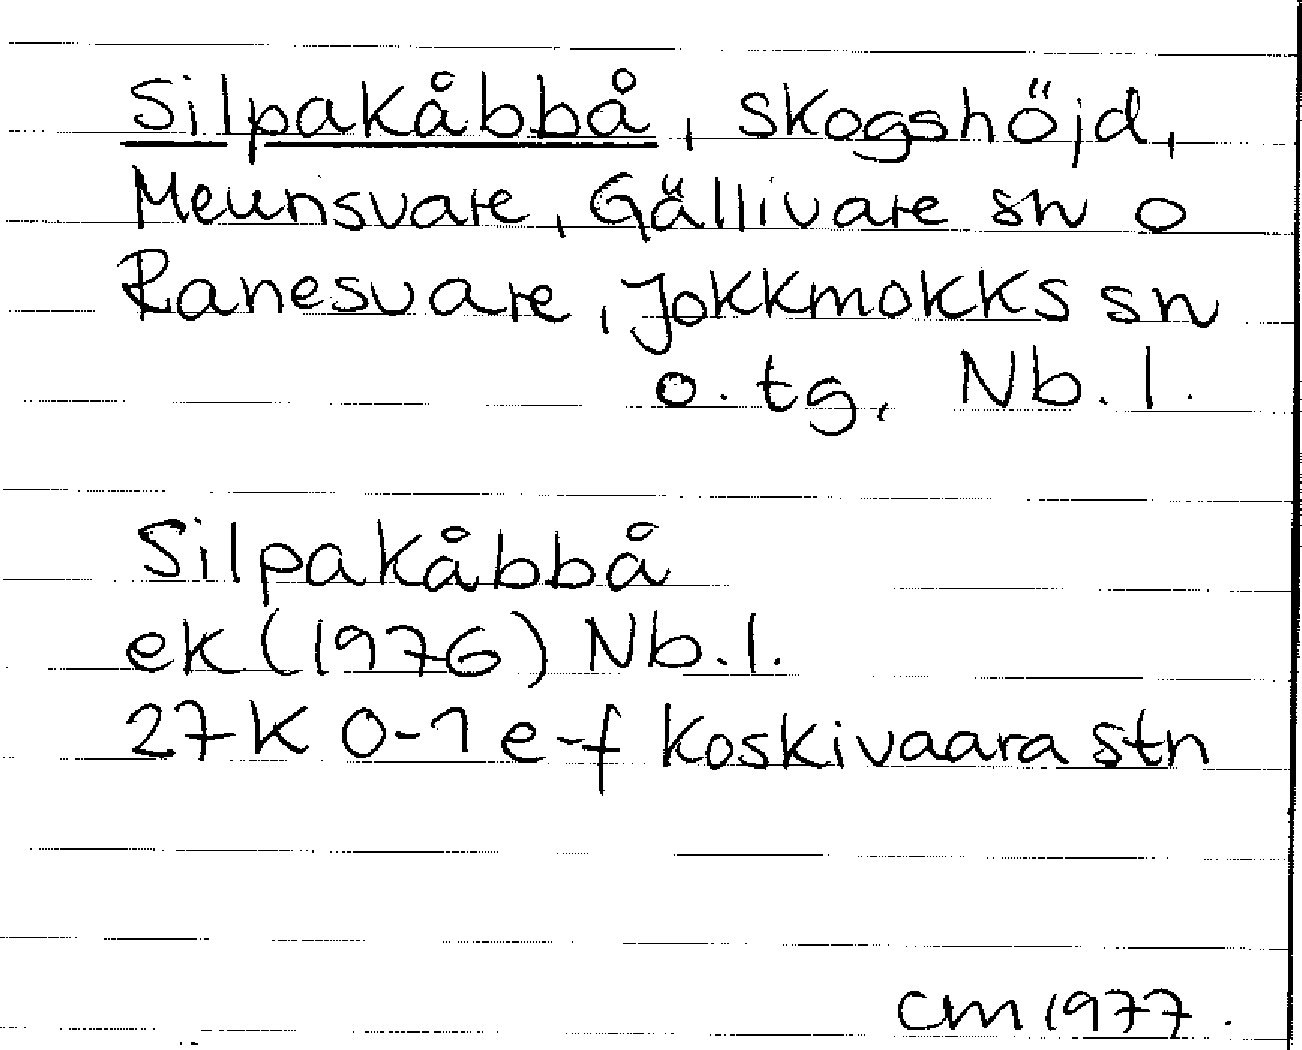 Silpakåbbå, skogshöjd,
Meunsvare, Gällivare sn o
Ranesvare, Jokkmokks sn
o. tg, Nb. l.
Silpakåbbå
ek (1976) Nb. l.
27 K 0-1 e-f Koskivaara stn
CM 1977.